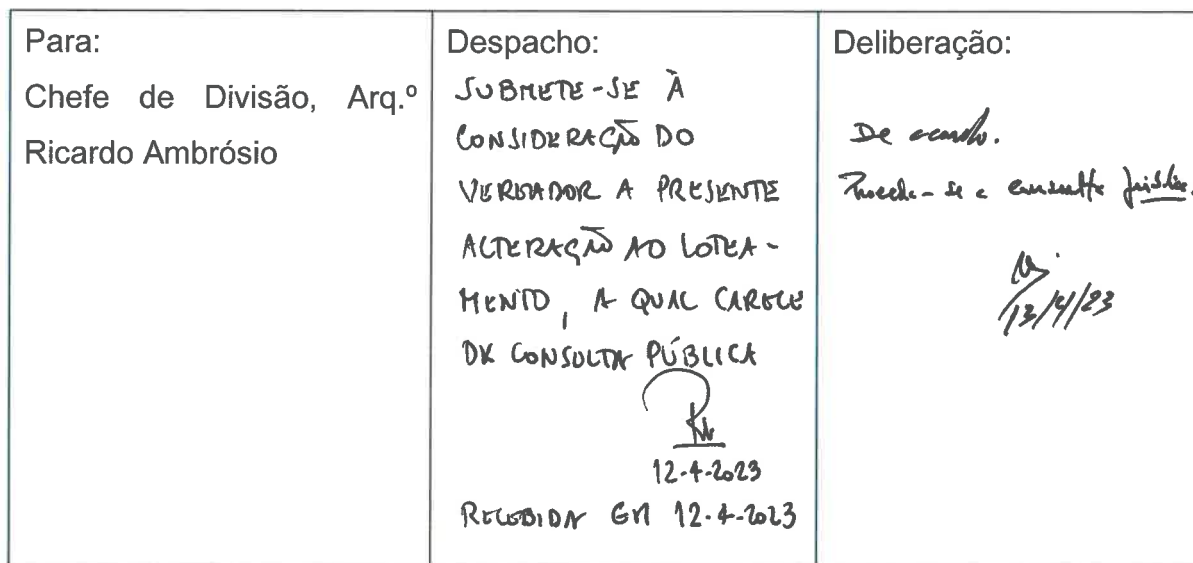 Para:
Chefe de Divisão, Arq.º
Ricardo Ambrósio
Despacho:
SUBMETE-SE À
CONSIDERAÇÃO DO
VEREADOR A PRESENTE
ALTERAÇÃO AO LOTEA-
MENTO, A QUAL CARECE
DE CONSULTA PÚBLICA
12-4-2023
RECEBIDA EM 12-4-2023
Deliberação:
De acordo.
Proceda-se a consulta pública.
13/4/23